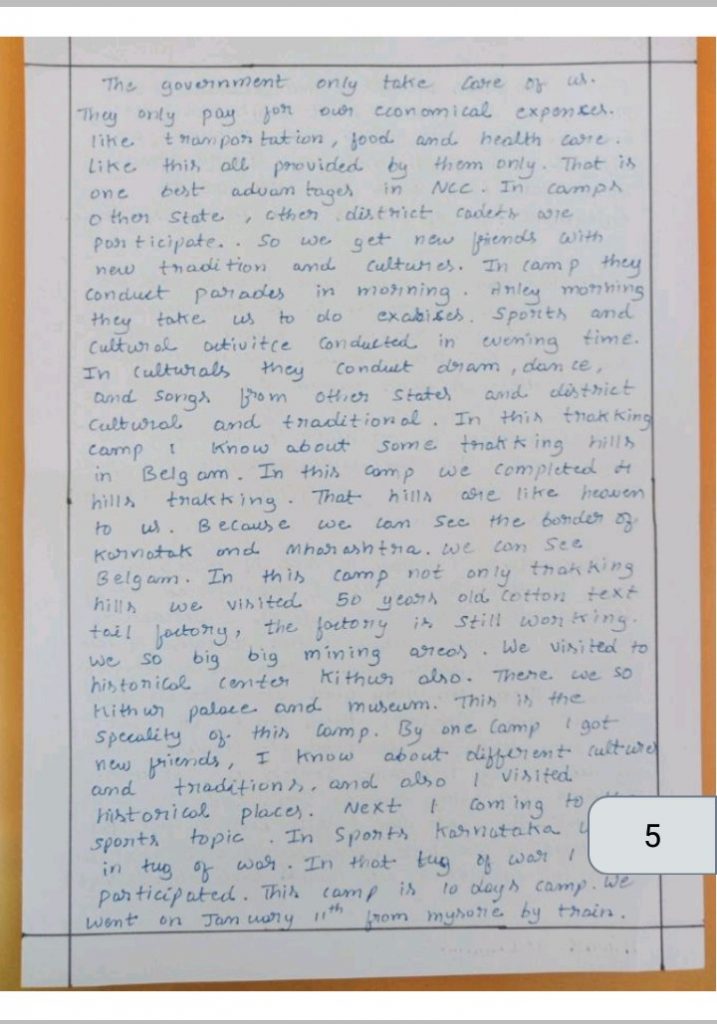 The government only take care of us.
They only pay for our economical expenses.
like tranportation, food and health care.
Like this all provided by them only. That is
one best advantages in NCC. In camps
other state, other district cadets are
participate.. So we get new friends with
new tradition and cultures. In camp they
conduct parades in morning. Arley morning
they take us to do exabises. Sports and
cultural activitce conducted in evening time.
In culturals they conduct dram, dance,
and songs from other states and district
cultural and traditional. In this trakking
camp I know about some trakking hills
in Belgam. In this camp we completed
hills trakking. That hills are like heaven
to us. Because we can see the border of
Karnatak and Mharashtra. We can see
Belgam. In this camp not only trakking
hills we visited 50 years old cotton text
tail factory, the factory is still working.
we so big big mining areas. We visited to
historical center Kithur also. There we so
Kithur palace and museum. This is the
speciality of this camp. By one camp I got
new friends, I know about different culture
and traditions, and also I visited
historical places. Next I coming to
sports topic. In Sports Karnataka
in tug of war. In that tug of war I
participated. This camp is 10 days camp. We
went on January 11th from mysore by train.
5